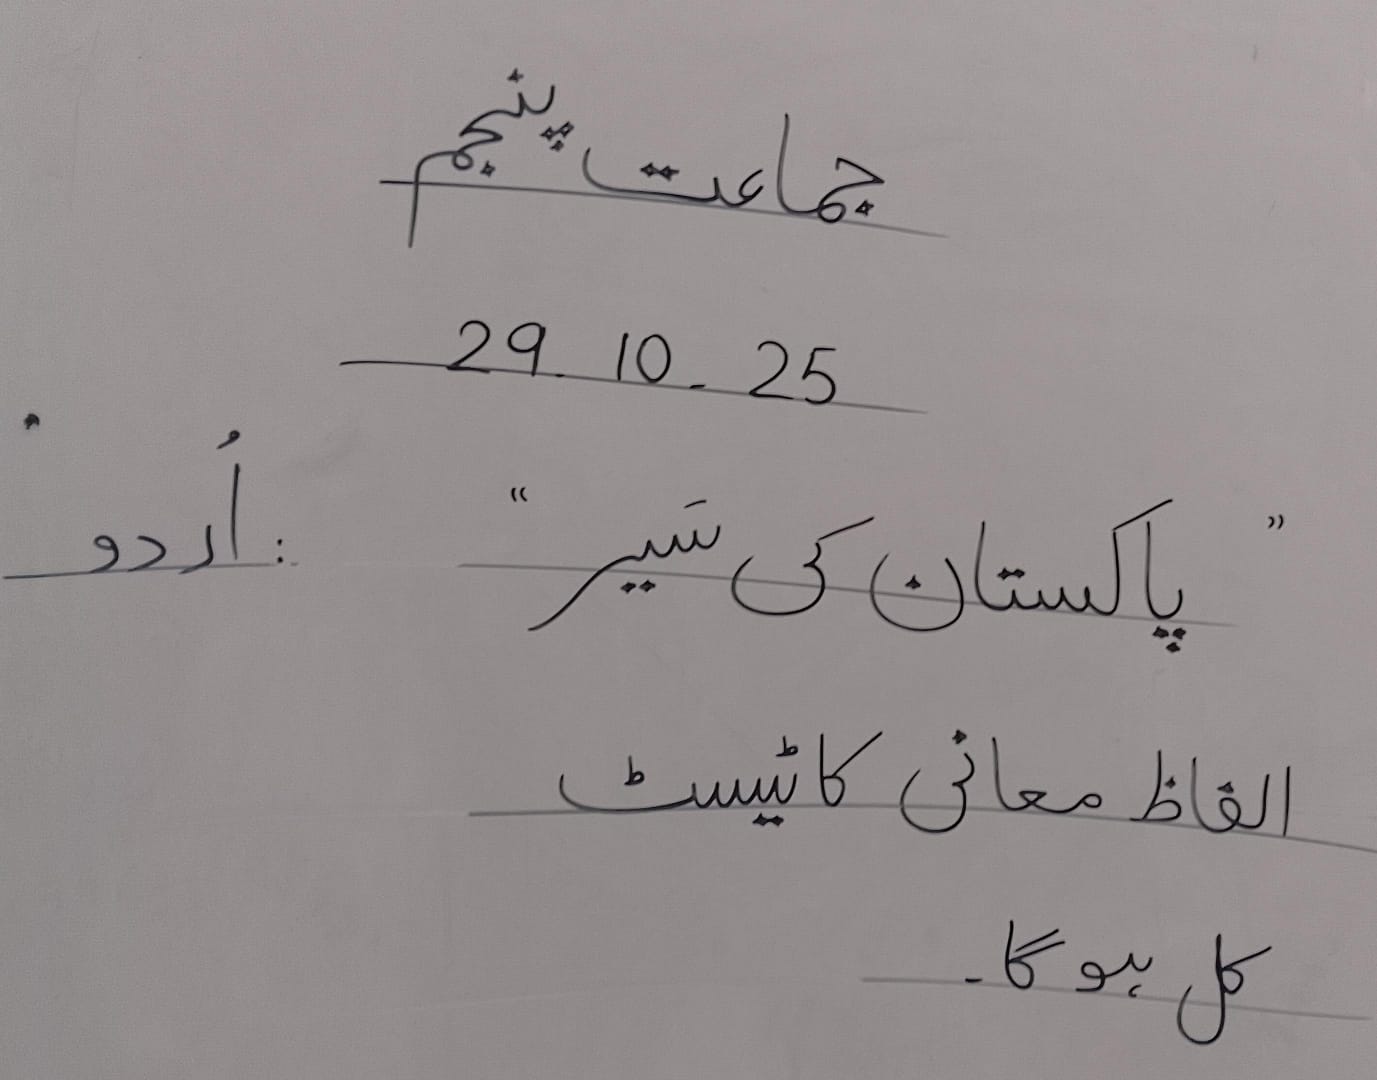 جماعت پنجم
29.10.25
اُردو:
”پاکستان کی سَیر“
الفاظ معانی کا ٹیسٹ
کل ہو گا۔